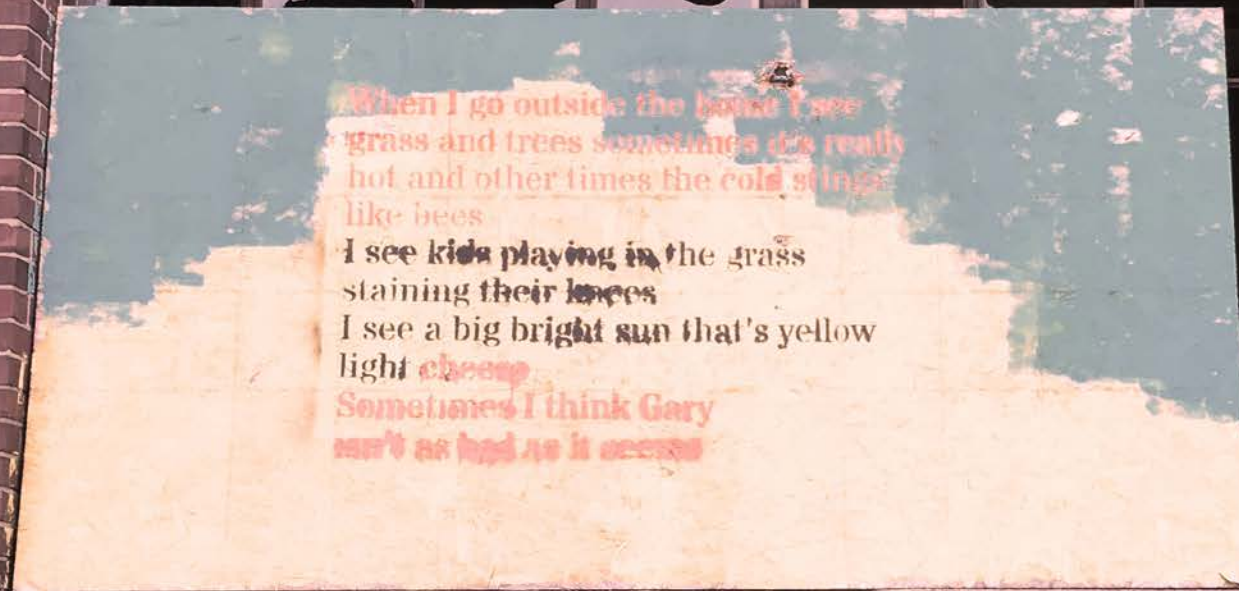 When I go outside the house I see
grass and trees sometimes it's really
hot and other times the cold stings
like bees
I see kids playing in the grass
staining their knees
I see a big bright sun that's yellow
light
Sometimes I think Gary
isn't as bad as it seems